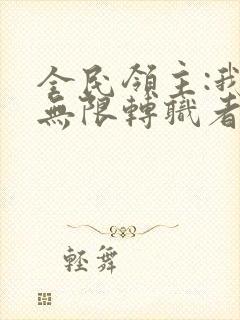 全民領主:我
無限轉職者
輕舞